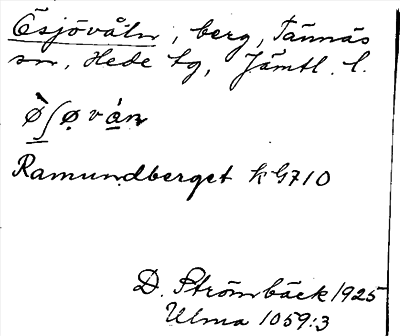 Ösjövåln, berg, Tännäs
sn, Hede tg, Jämtl. l.
ø̀ʃø̣vạ̇n
Ramundberget kG710
D. Strömbäck 1925
Ulma 1059:3